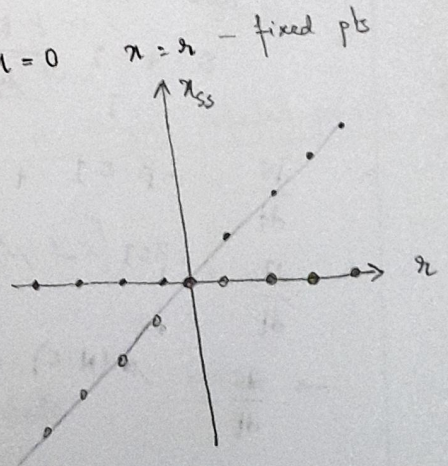 x = 0 x = r - fixed pts
x_ss
r